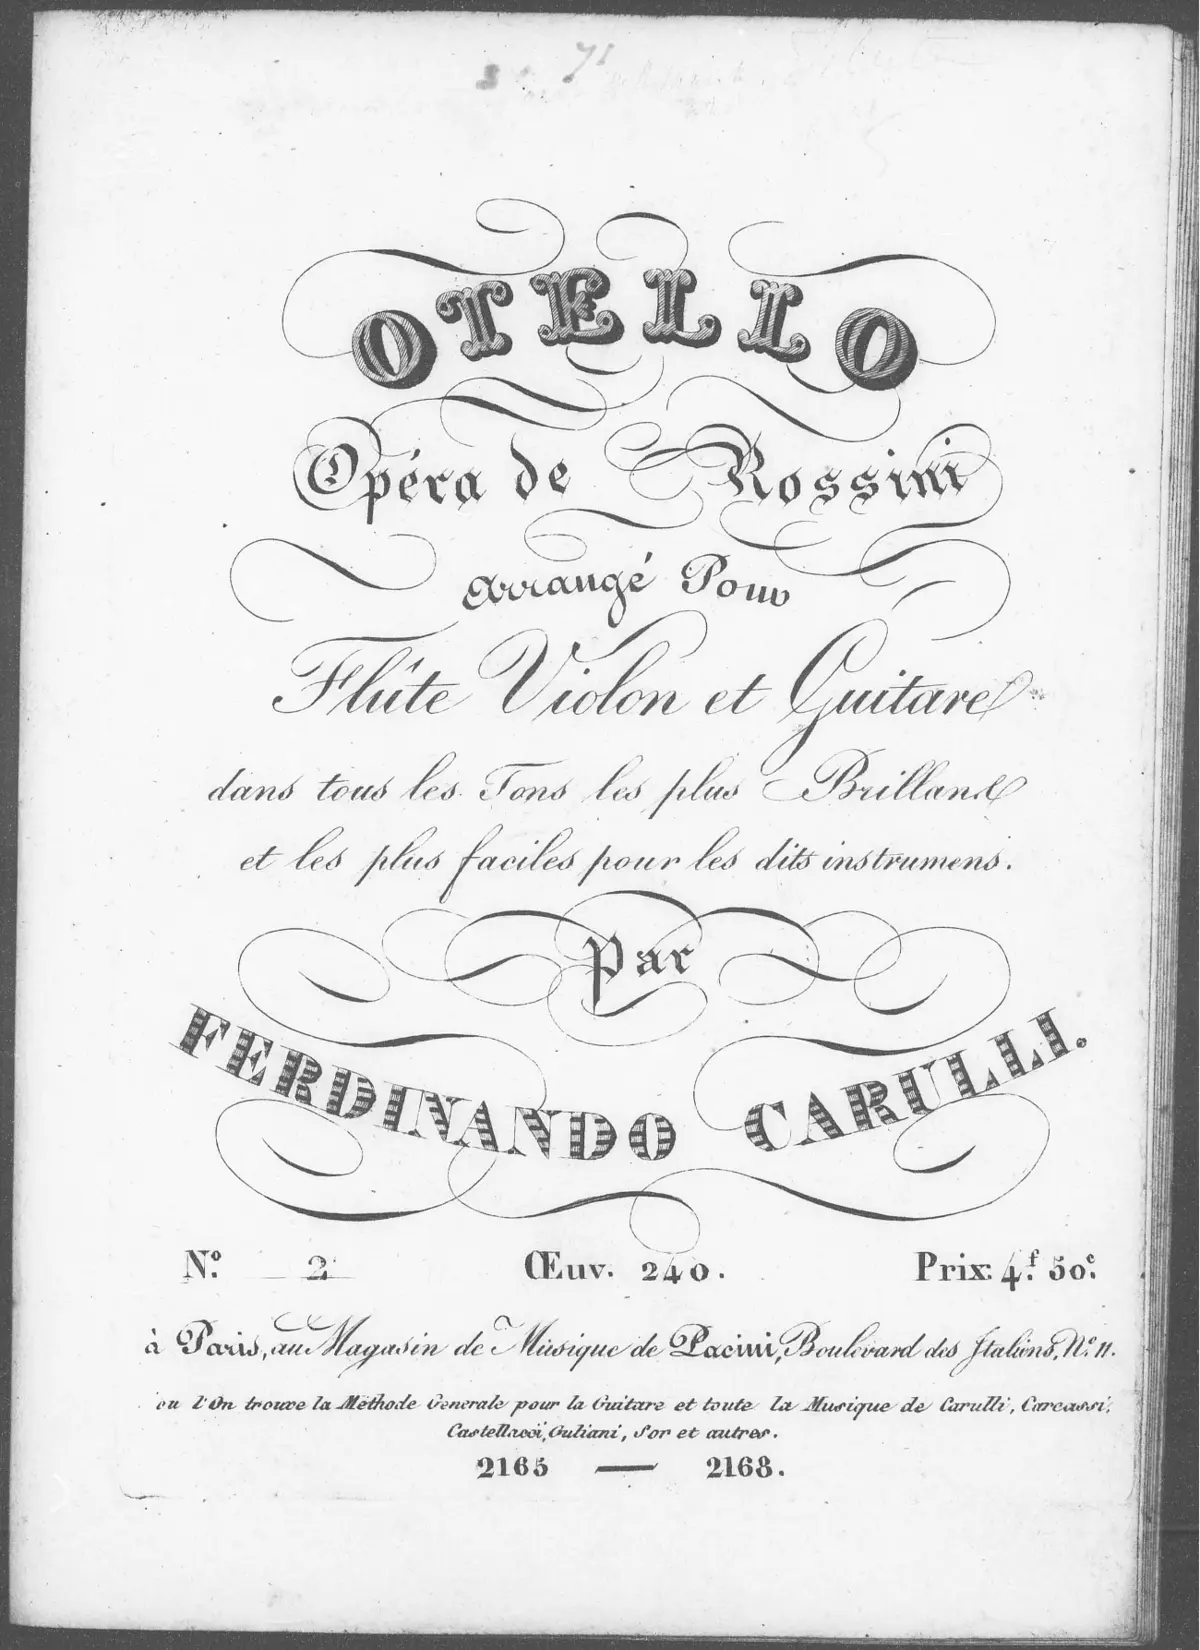 71
OTELLO
Opéra de Rossini
Arrangé Pour
Flûte Violon et Guitare
dans tous les Tons les plus Brillans
et les plus faciles pour les dits instrumens.
Par
FERDINANDO CARULLI.
N.º 2 Œuv. 240. Prix 4.f 50.c
à Paris, au Magasin de Musique de Pacini, Boulevard des Italiens, N.º 11.
ou l'On trouve la Méthode Generale pour la Guitare et toute la Musique de Carulli, Carcassi,
Castellacci, Guliani, Sor et autres.
2165 — 2168.